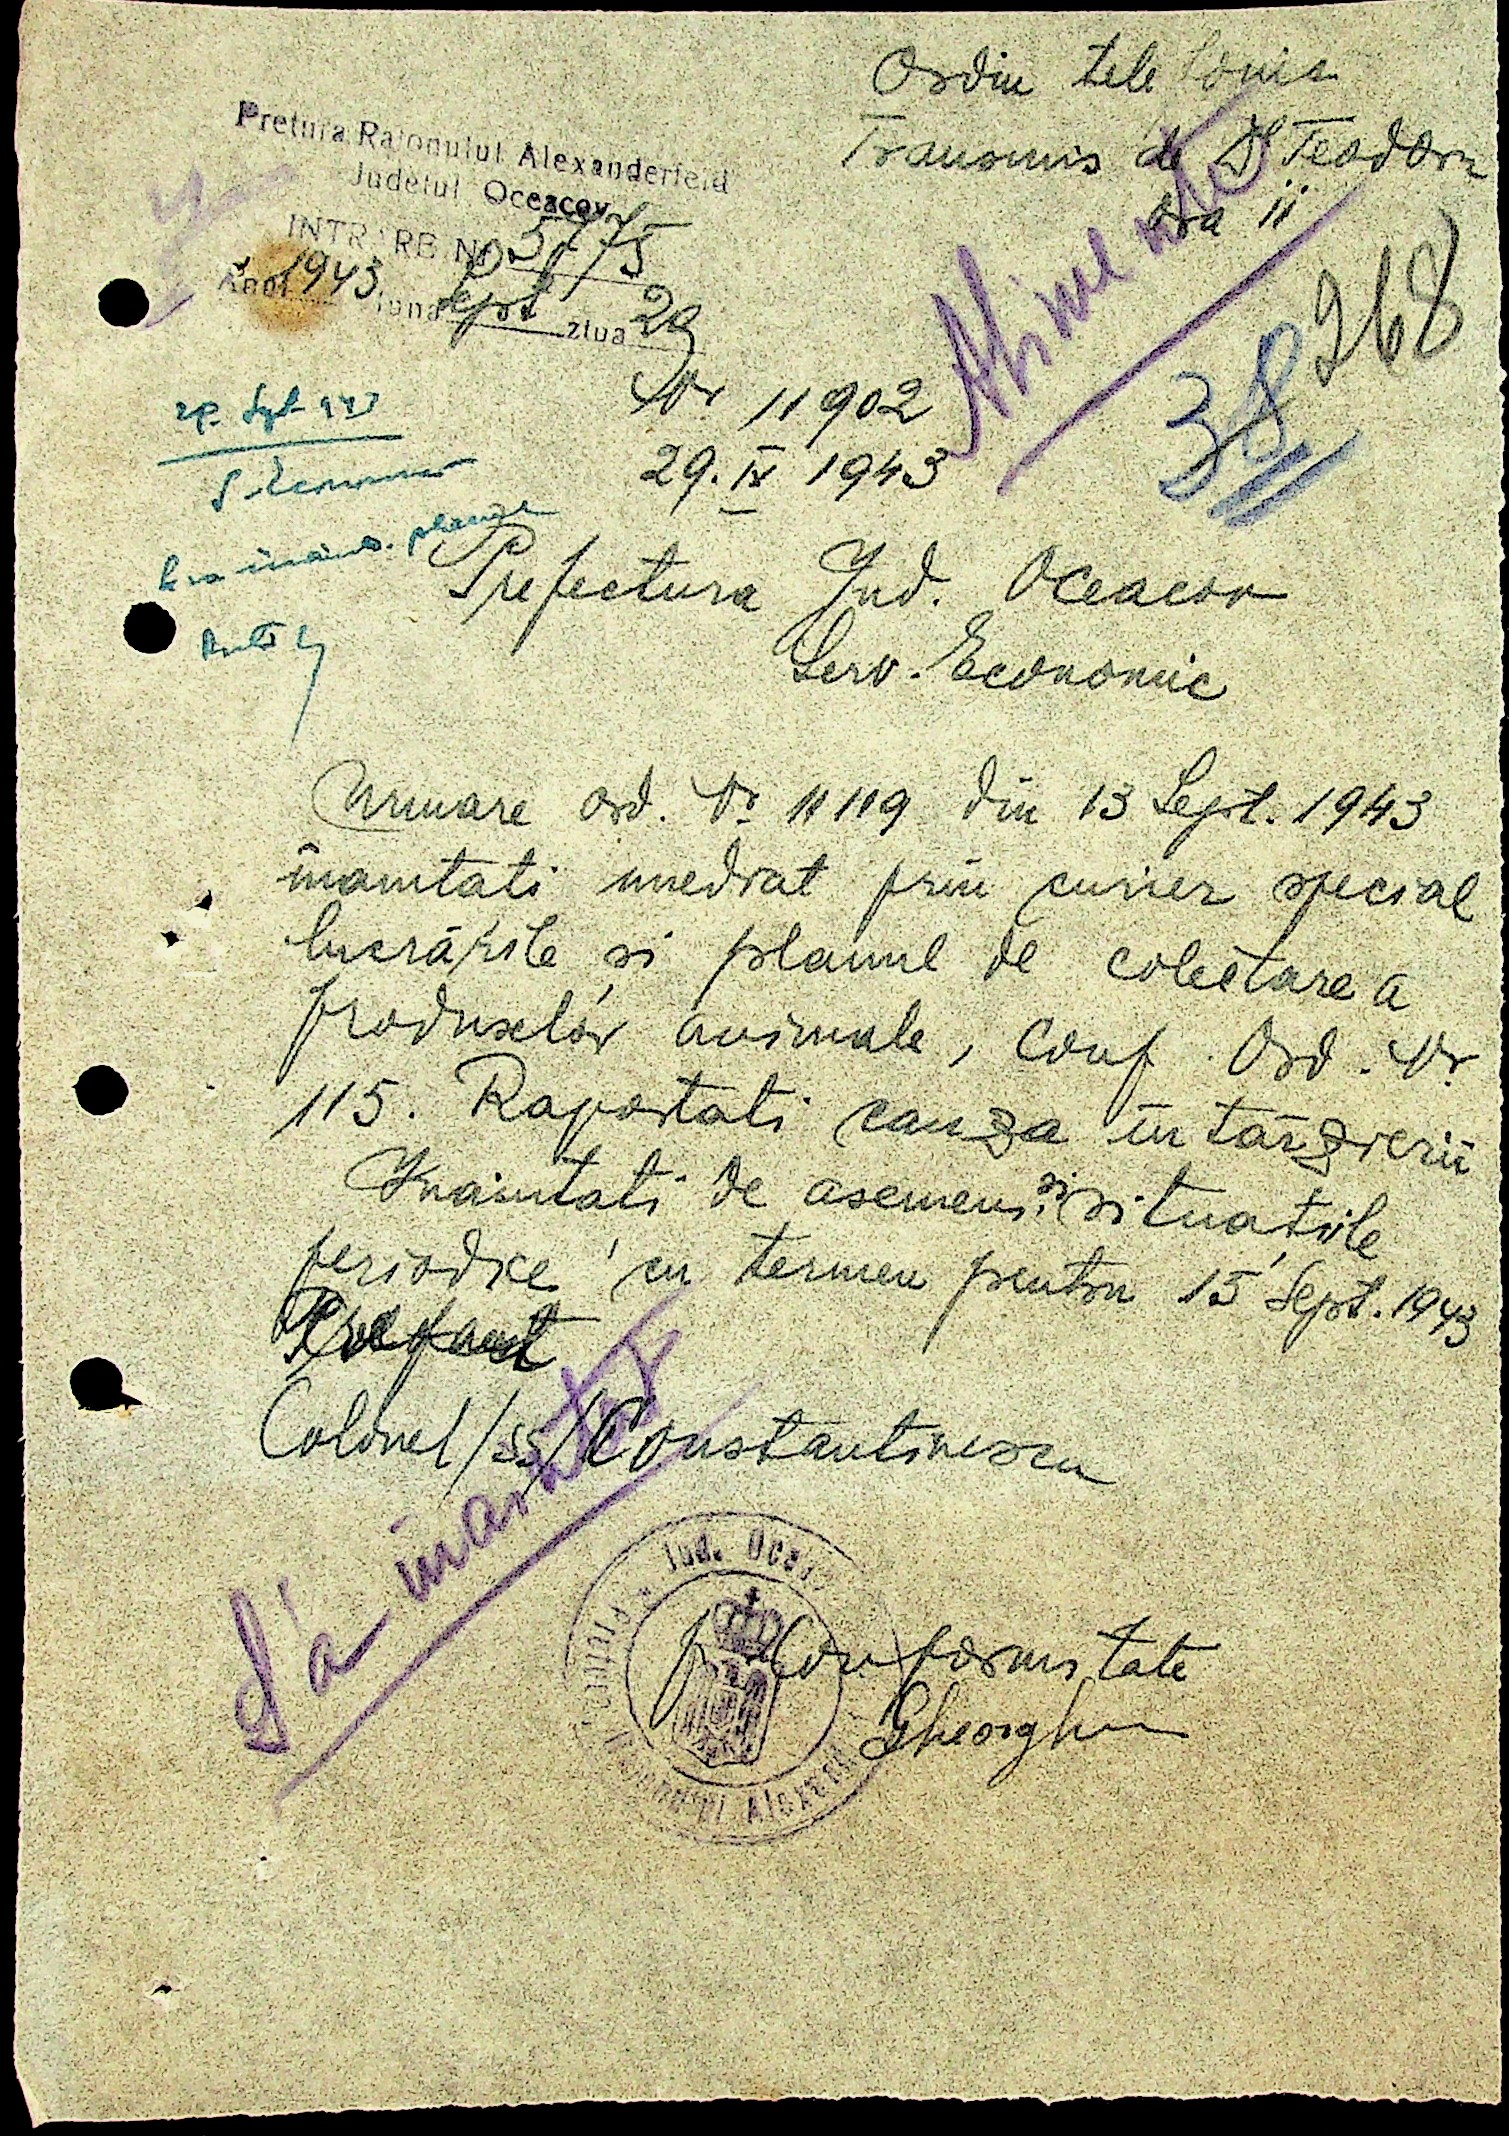 Ordin telefonic
Transmis de Dl Teodoru
ora 11
Pretura Raionului Alexanderfeld
Judetul Oceacov
INTRARE Nr. 5775
Anul 1943 luna Sept ziua 29
Alimente
268
38
Nr 11902
29.IX 1943
29. Sept 943
Prefectura Jud. Oceacov
Serv. Economic
Urmare ord. Nr. 11119 din 13 Sept. 1943
înaintati imediat prin curier special
lucrările si planul de colectare a
produselor animale, conf. Ord. Nr.
115. Raportati cauza întârzierii
Inaintati de asemeni si situatiile
periodice cu termen pentru 15 Sept. 1943
Prefect
Colonel /ss/ Constantinescu
S'a inaintat
Pretura Raionului Alexand
Jud. Oceac
p. Conformitate
Gheorghiu